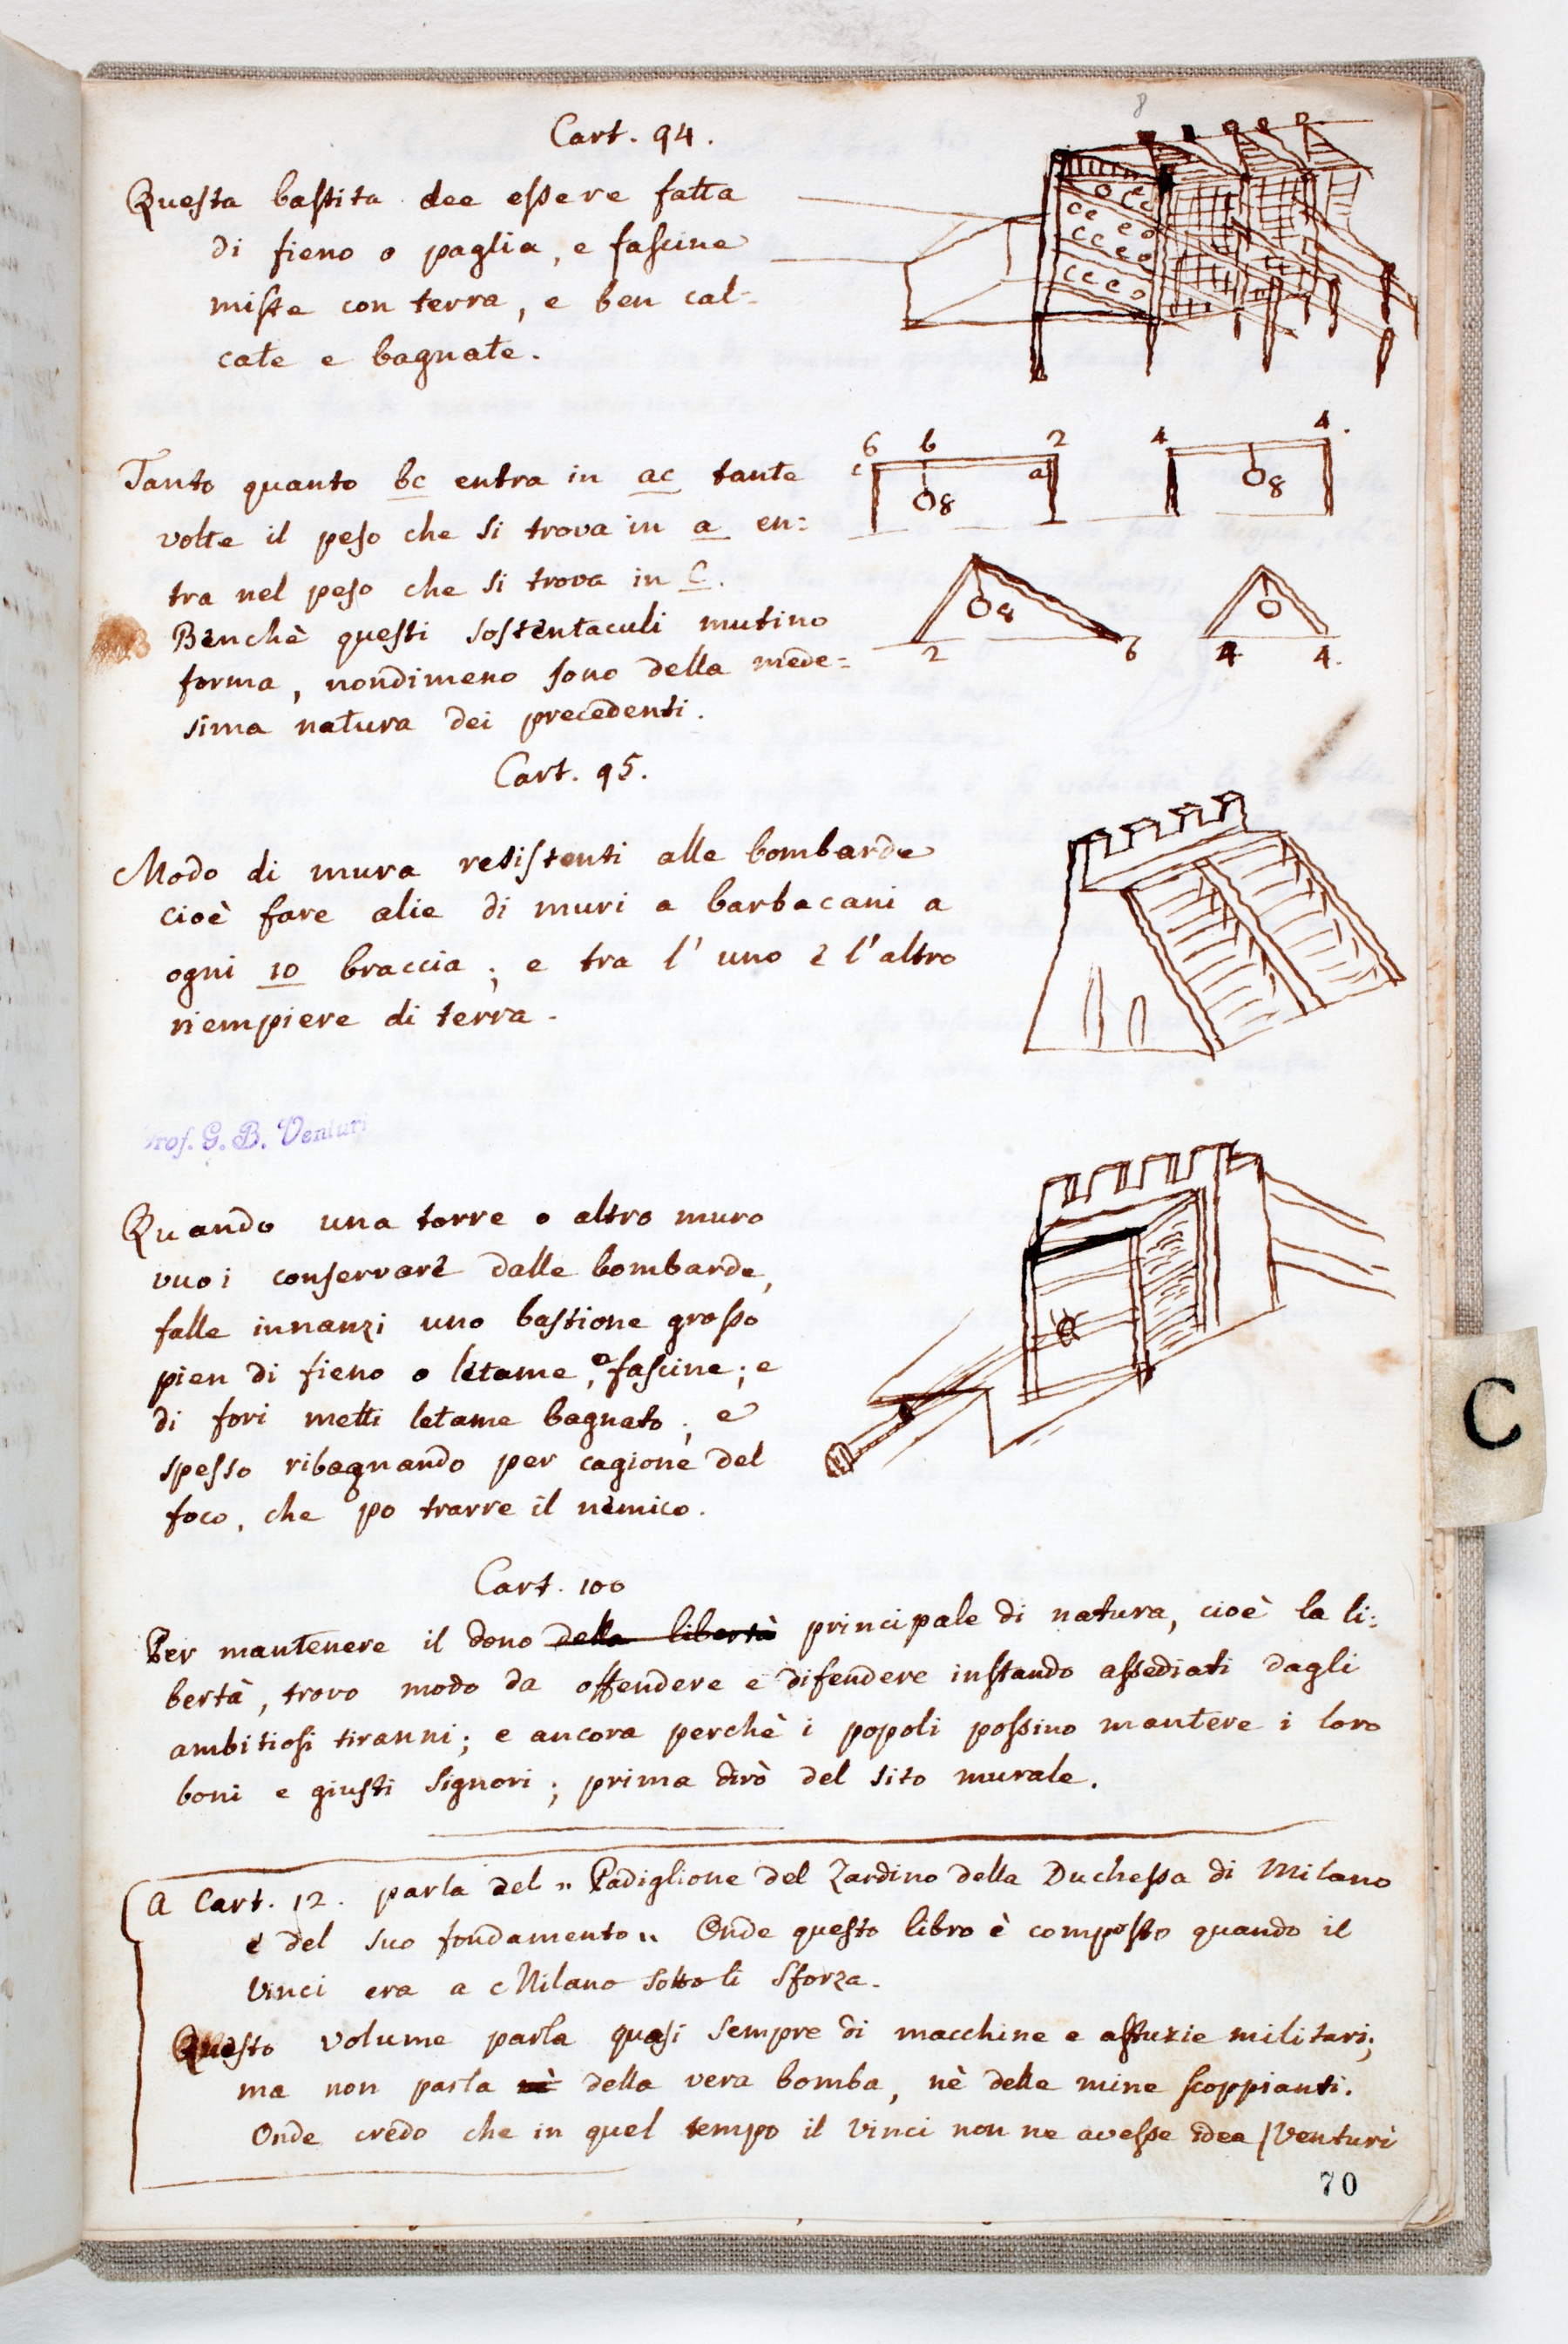 8
Cart. 94.
Questa bastita dee essere fatta
di fieno o paglia, e fascine
miste con terra, e ben cal=
cate e bagnate.
6 b 2 4 4.
c a
8 8
Tanto quanto bc entra in ac tante
volte il peso che si trova in a en=
tra nel peso che si trova in C.
8
2 6 4 4.
Benchè questi sostentaculi mutino
forma, nondimeno sono della mede=
sima natura dei precedenti.
Cart. 95.
Modo di mura resistenti alle bombarde
cioè fare alie di muri a barbacani a
ogni 10 braccia; e tra l'uno e l'altro
riempiere di terra.
Prof. G. B. Venturi
Quando una torre o altro muro
vuoi conservare dalle bombarde,
falle innanzi uno bastione grosso
pien di fieno o letame, o fascine; e
di fori metti letame bagnato; e
spesso ribagnando per cagione del
foco, che po trarre il nemico.
Cart. 100
Per mantenere il dono della libertà principale di natura, cioè la li=
bertà, trovo modo da offendere e difendere instando assediati dagli
ambitiosi tiranni; e ancora perchè i popoli possino mantere i loro
boni e giusti Signori; prima dirò del sito murale.
A Cart. 12. parla del „ Padiglione del Zardino della Duchessa di Milano
e del suo fondamento „ Onde questo libro è composto quando il
Vinci era a Milano sotto li Sforza.
Questo volume parla quasi sempre di macchine e astuzie militari;
ma non parla nè della vera bomba, nè delle mine scoppianti.
Onde credo che in quel tempo il Vinci non ne avesse idea / Venturi
70
C